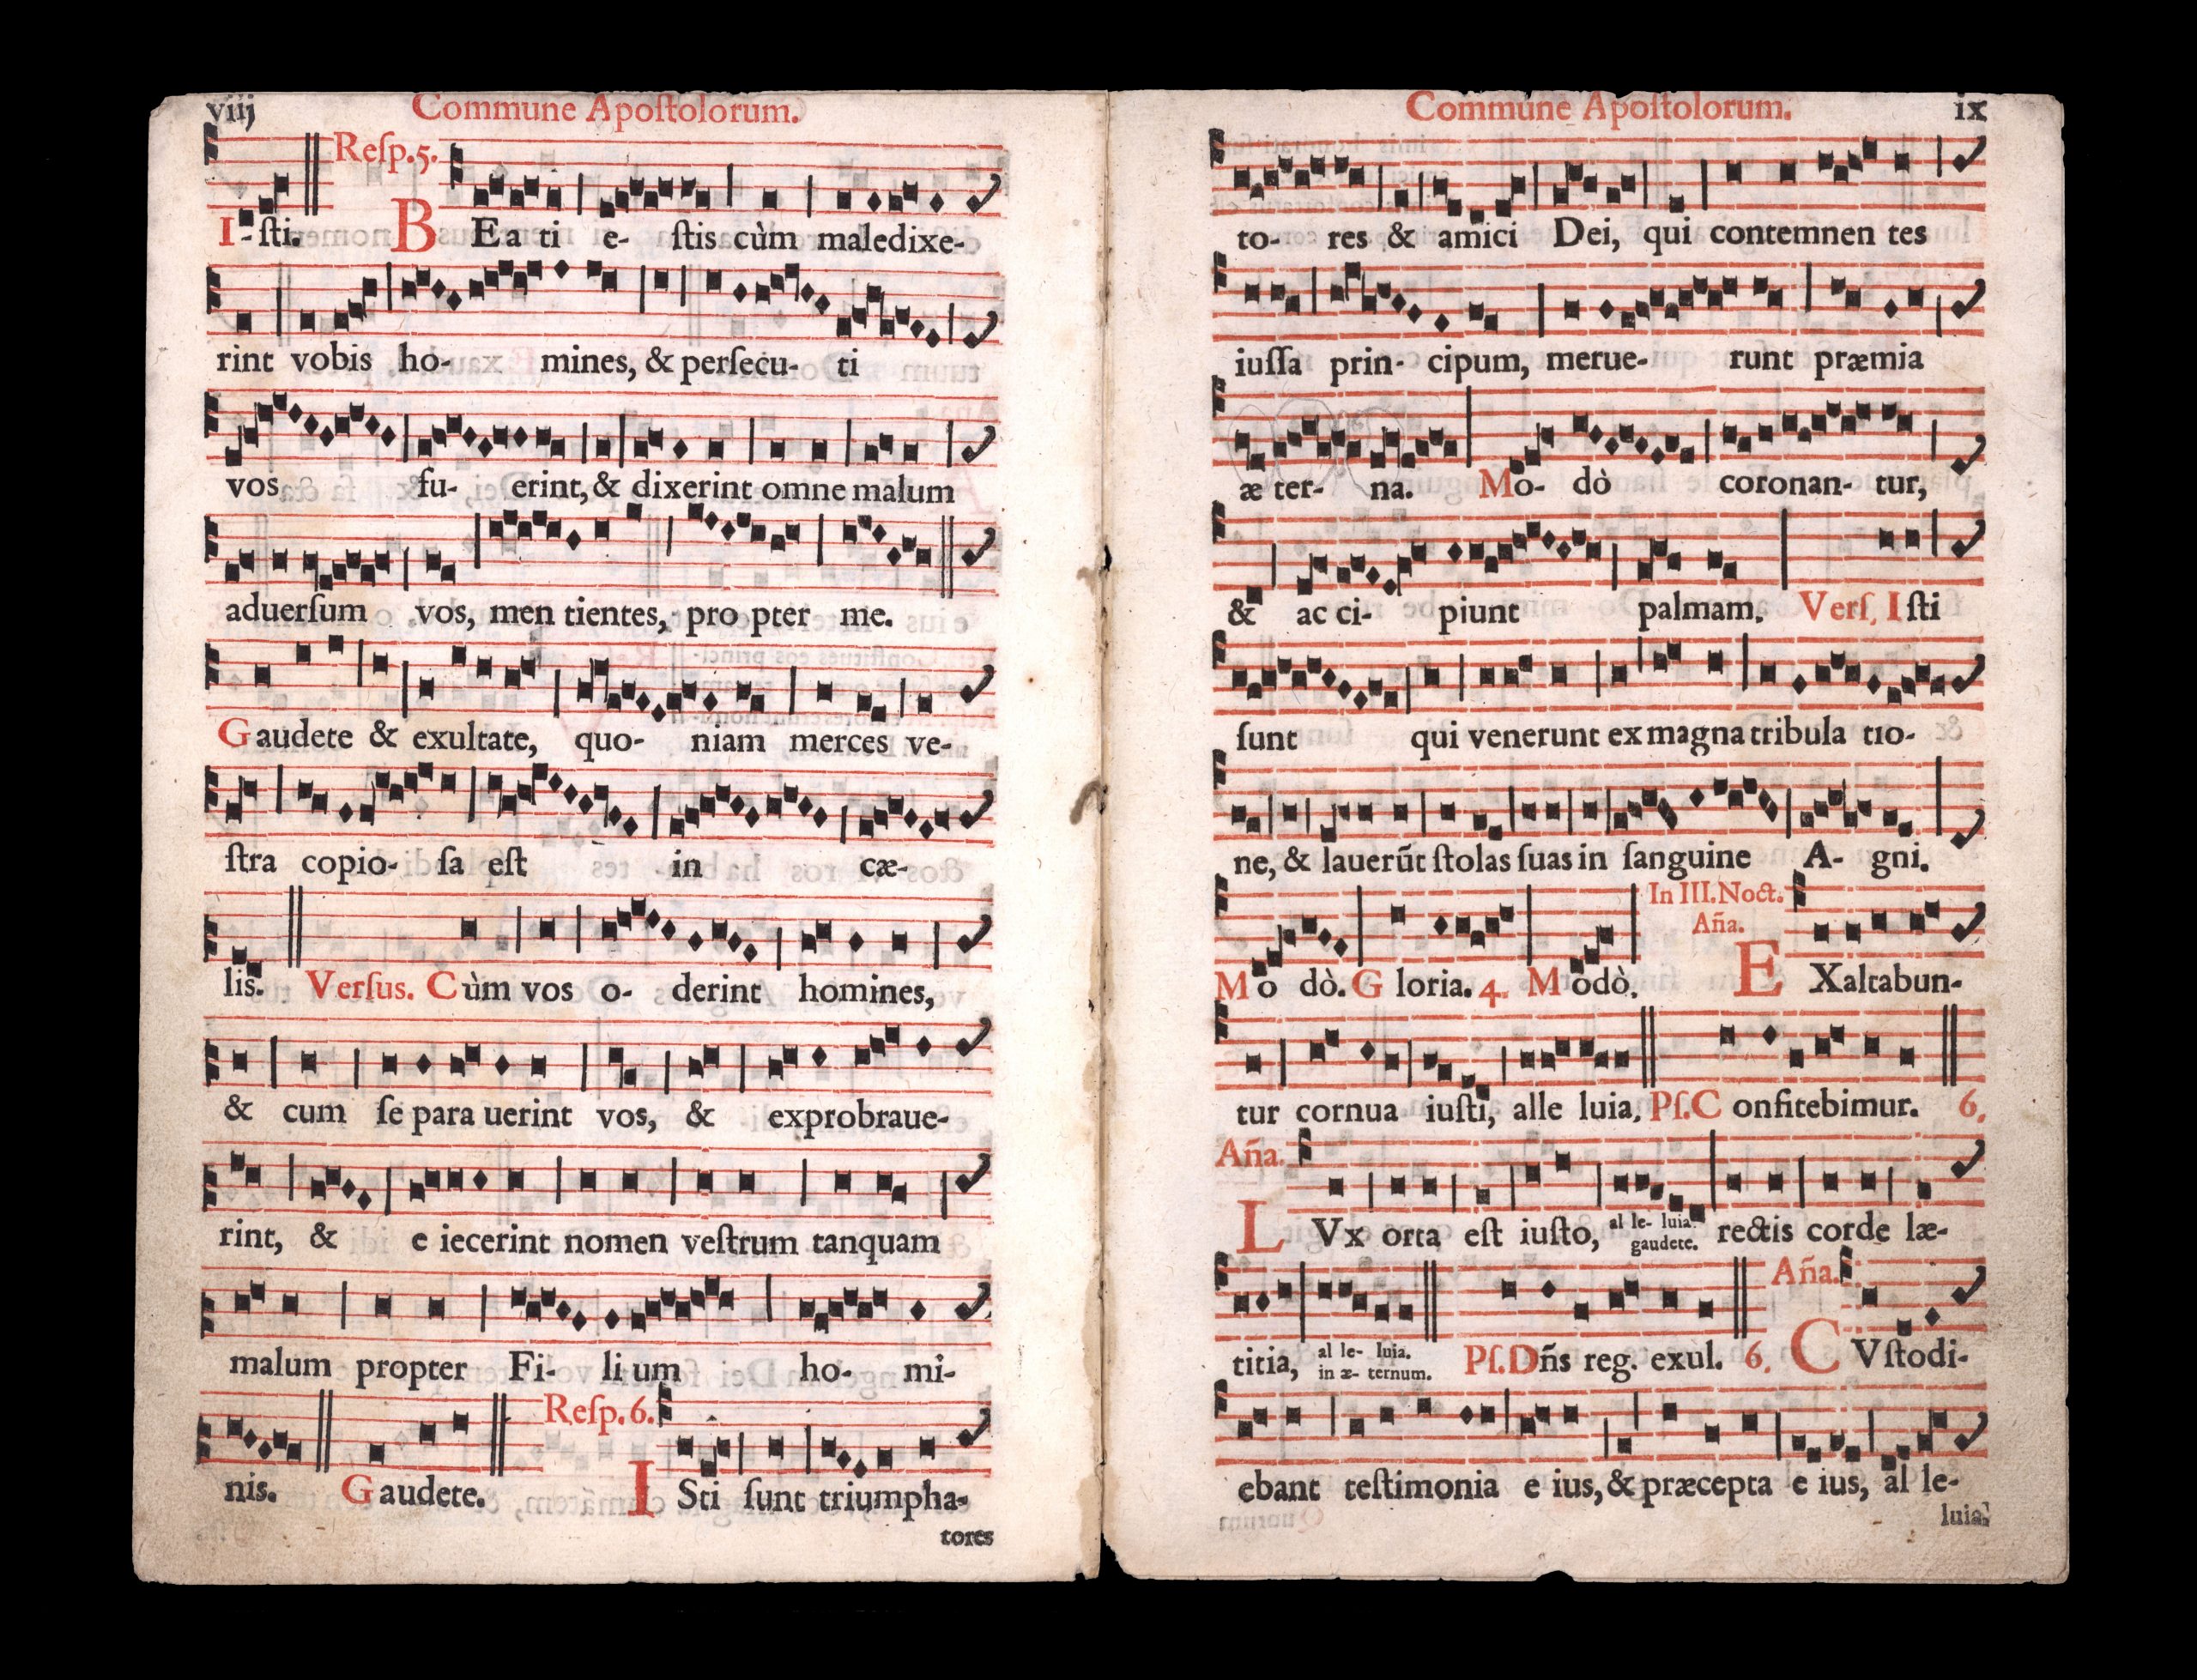 viij Commune Apoſtolorum.
Reſp.5.
I-ſti. BEati e- ſtis cùm maledixe-
rint vobis ho- mines, & perſecu- ti
vos fu- erint, & dixerint omne malum
aduerſum vos, men tientes, pro pter me.
Gaudete & exultate, quo- niam merces ve-
ſtra copio- ſa eſt in cæ-
lis. Verſus. Cùm vos o- derint homines,
& cum ſe para uerint vos, & exprobraue-
rint, & e iecerint nomen veſtrum tanquam
malum propter Fi- li um ho- mi-
Reſp.6.
nis. Gaudete. ISti ſunt triumpha-
tores
Commune Apoſtolorum. ix
to- res & amici Dei, qui contemnen tes
iuſſa prin- cipum, merue- runt præmia
æ ter- na. Mo- dò coronan- tur,
& ac ci- piunt palmam. Verſ. Iſti
ſunt qui venerunt ex magna tribula tio-
ne, & lauerūt ſtolas ſuas in ſanguine A- gni.
In III. Noct.
Aña.
Mo dò. Gloria. 4. Modò. EXaltabun-
tur cornua iuſti, alle luia. Pſ. Confitebimur. 6.
Aña.
LVx orta eſt iuſto, al le- luia. gaudete. rectis corde læ-
Aña.
titia, al le- luia. in æ- ternum. Pſ. Dñs reg. exul. 6. CVſtodi-
ebant teſtimonia e ius, & præcepta e ius, al le-
luia.